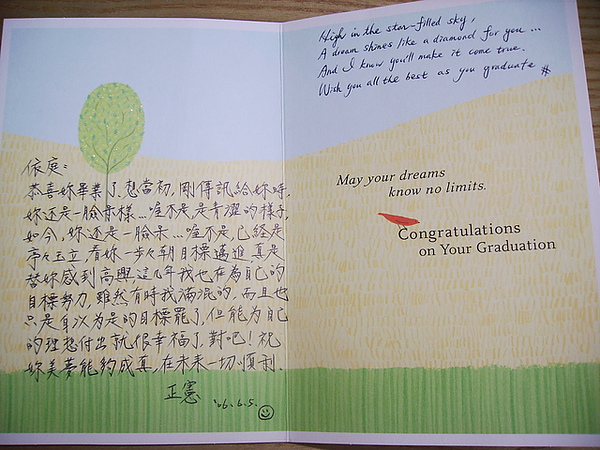 依庭:
恭喜妳畢業了,想當初,剛傳訊給妳時,
妳還是一臉呆樣...喔不是,是青澀的樣子,
如今,妳還是一臉呆...喔不是,已經是
亭亭玉立,看妳一步步朝目標邁進真是
替妳感到高興,這几年我也在為自己的
目標努力,雖然有時我滿混的,而且也
只是自以為是的目標罷了,但能為自己
的理想付出就很幸福了,對吧!祝
妳美夢能夠成真,在未來一切順利.
正憲 '06.6.5.
High in the star-filled sky,
A dream shines like a diamond for you...
And I know you'll make it come true.
Wish you all the best as you graduate #
May your dreams
know no limits.
Congratulations
on Your Graduation